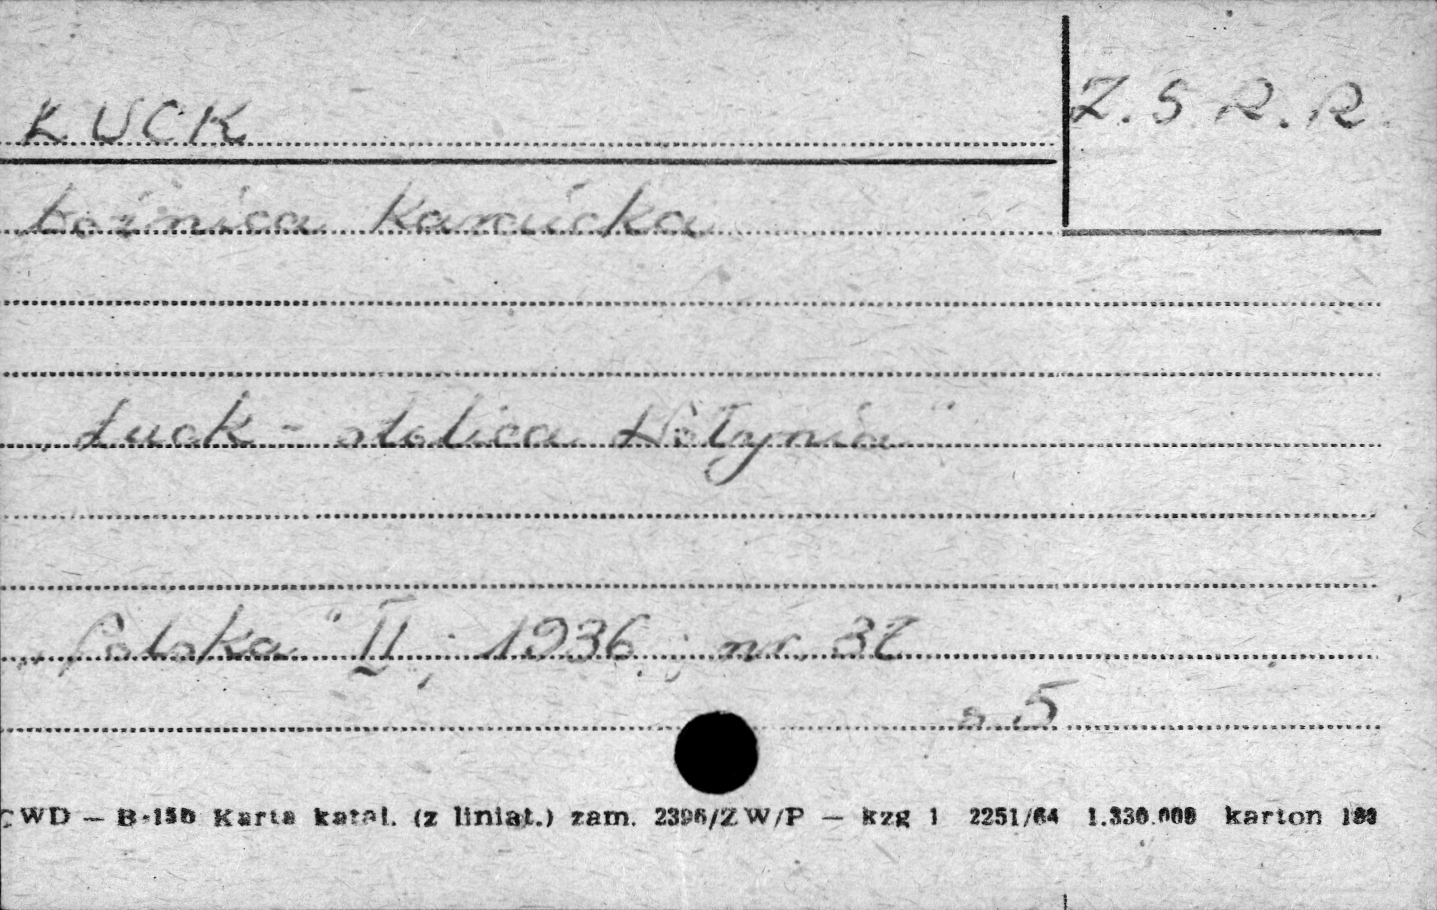 ŁUCK
Z.S.R.R.
bóżnica Karaicka
„Łuck - stolica Wołynia"
„Polska" II, 1936, nr. 37
s. 5
CWD — B-15b Karta katal. (z liniat.) zam. 2396/ZW/P — kzg 1 2251/64 1.330.000 karton